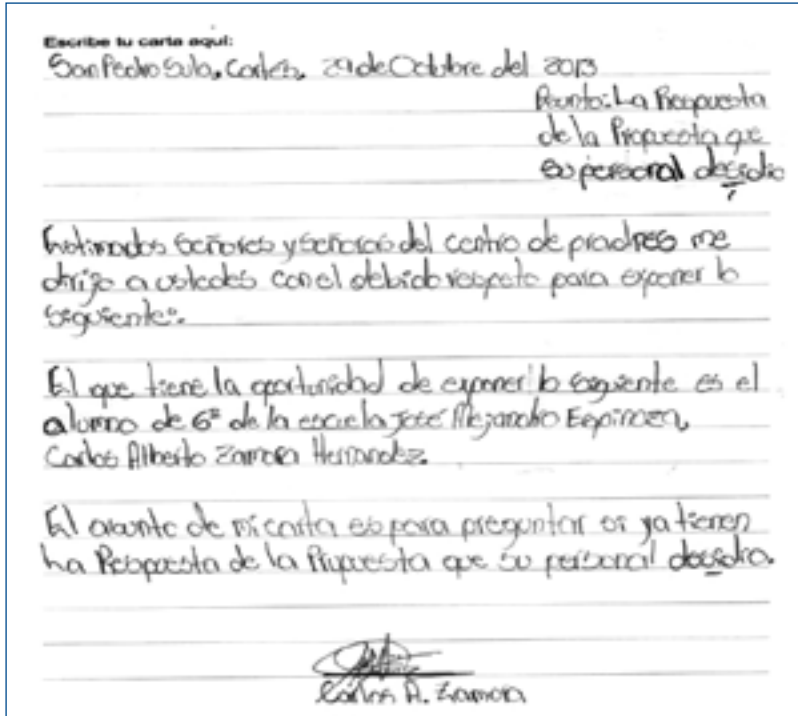 Escribe tu carta aquí:
San Pedro Sula, Cortés. 29 de Octubre del 2013
Asunto: La Respuesta
de la Propuesta que
su personal decidio
Estimados Señores y Señoras del centro de pradres me
dirijo a ustedes con el debido respeto para exponer lo
siguiente:
El que tiene la oportunidad de exponer lo siguiente es el
alumno de 6º de la escuela José Alejandro Espinoza,
Carlos Alberto Zamora Hernandez.
El asunto de mi carta es para preguntar si ya tienen
La Respuesta de la Propuesta que su personal decidio.
Carlos A. Zamora